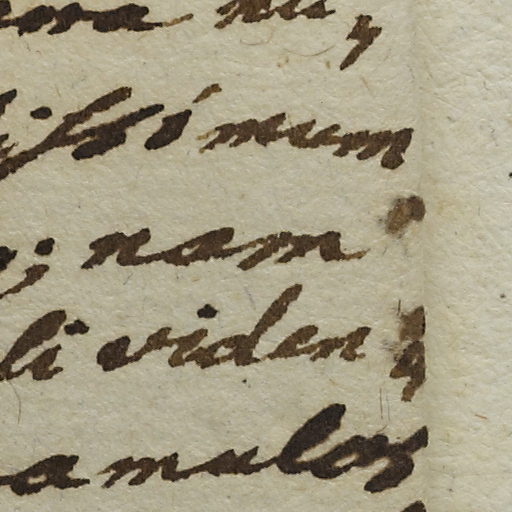 issimum
; nam
li viden,
amulos